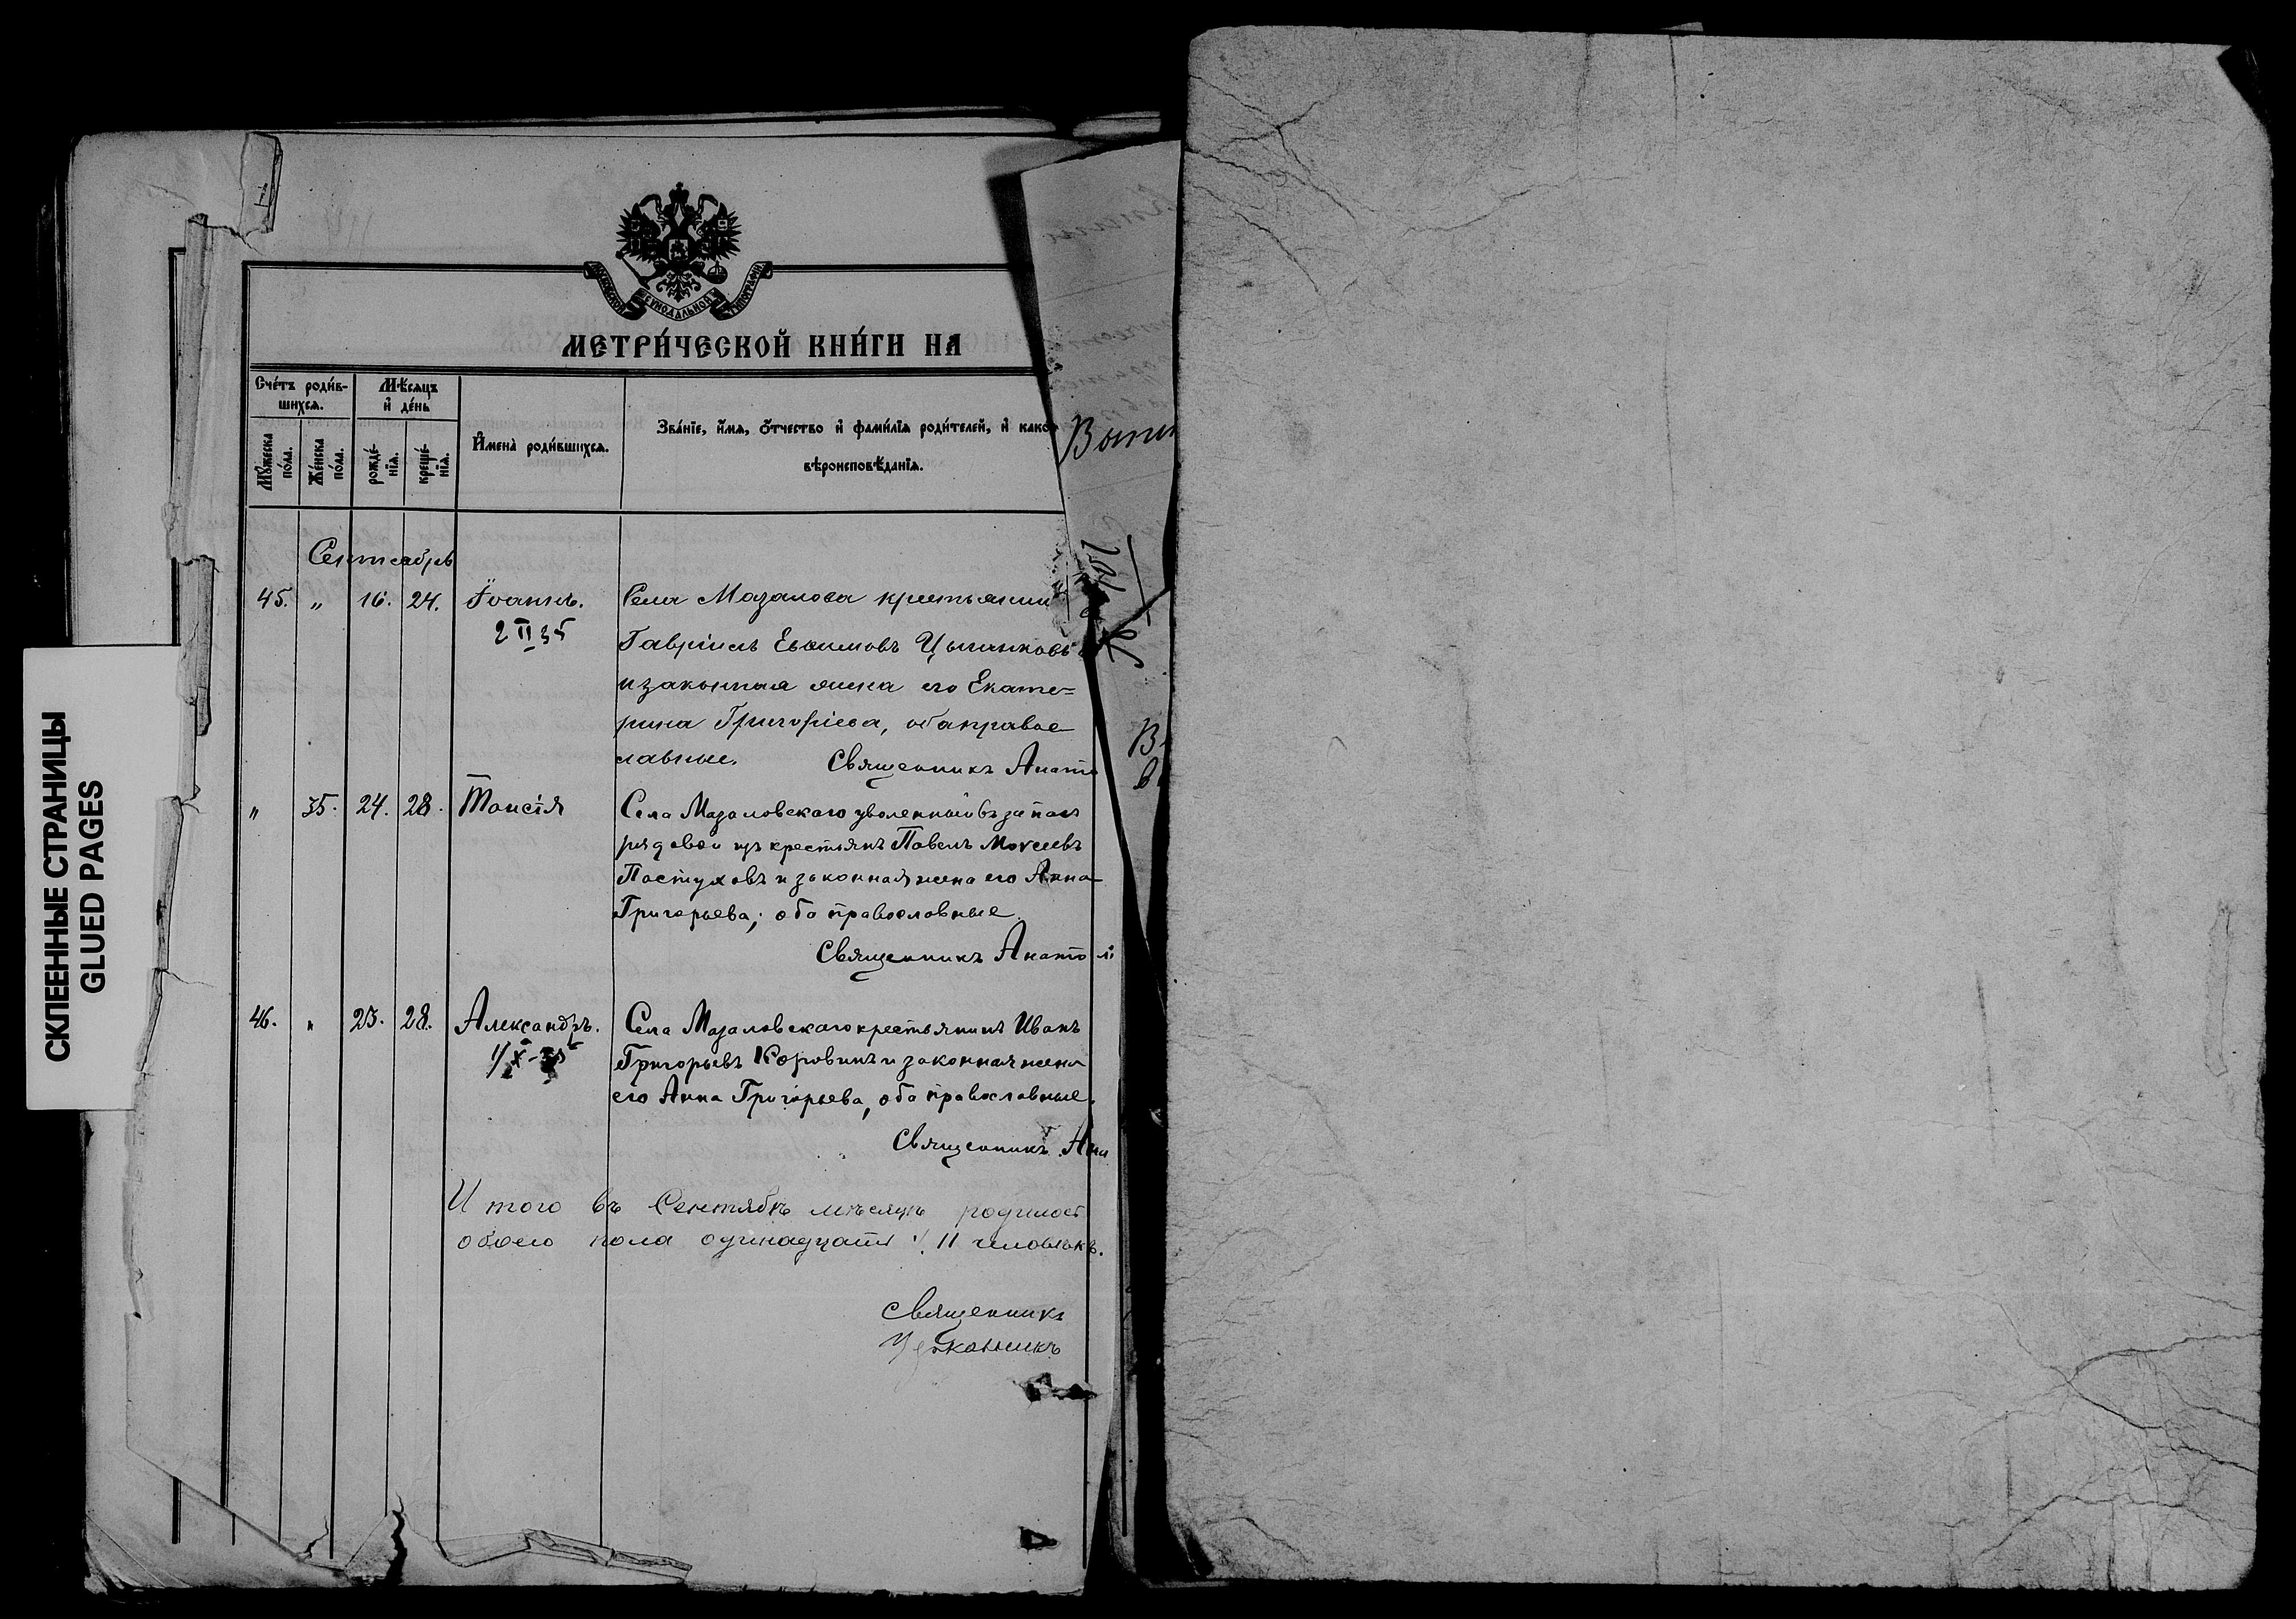 СКЛЕЕННЫЕ СТРАНИЦЫ
GLUED PAGES
МОСКОВСКОЙ СѴНОДАЛЬНОЙ ТИПОГРАФІИ
МЕТРИ́ЧЕСКОЙ КНИ́ГИ НА
Сче́тъ роди́в-
шихся.
Мѣ́сяцъ
и҆ де́нь
Мꙋ́жеска по́ла.
Же́нска по́ла.
рожде́-
нїѧ.
креще́-
нїѧ.
И҆мена̀ роди́вшихся.
Зва́нїе, и҆́мѧ, ѻ҆́тчество и҆ фами́лїѧ роди́телей, и҆ како́
вѣроисповѣ́данїѧ.
Сентябрь
45. " 16. 24. Іоаннъ. Села Мазалова крестьянинъ
2 II 35
Гавріилъ Евѳимовъ Цыганковъ
и законная жена его Екате=
рина Григоріева, оба право
славные. Священникъ Анато
" 35. 24. 28. Таисія Села Мазаловскаго уволенный въ запасъ
рядовой изъ крестьянъ Павелъ Моѵсеевъ
Пастуховъ и законная жена его Анна
Григорьева, оба православные.
Священникъ Анатолі
46. " 25. 28. Александръ. Села Мазаловскаго крестьянинъ Иванъ
Григорьевъ Коровинъ и законная жена
его Анна Григорьева, оба православные.
Священникъ Ана
Итого въ Сентябрѣ мѣсяцѣ родилось
обоего пола одинадцать 11 человѣкъ.
Священникъ